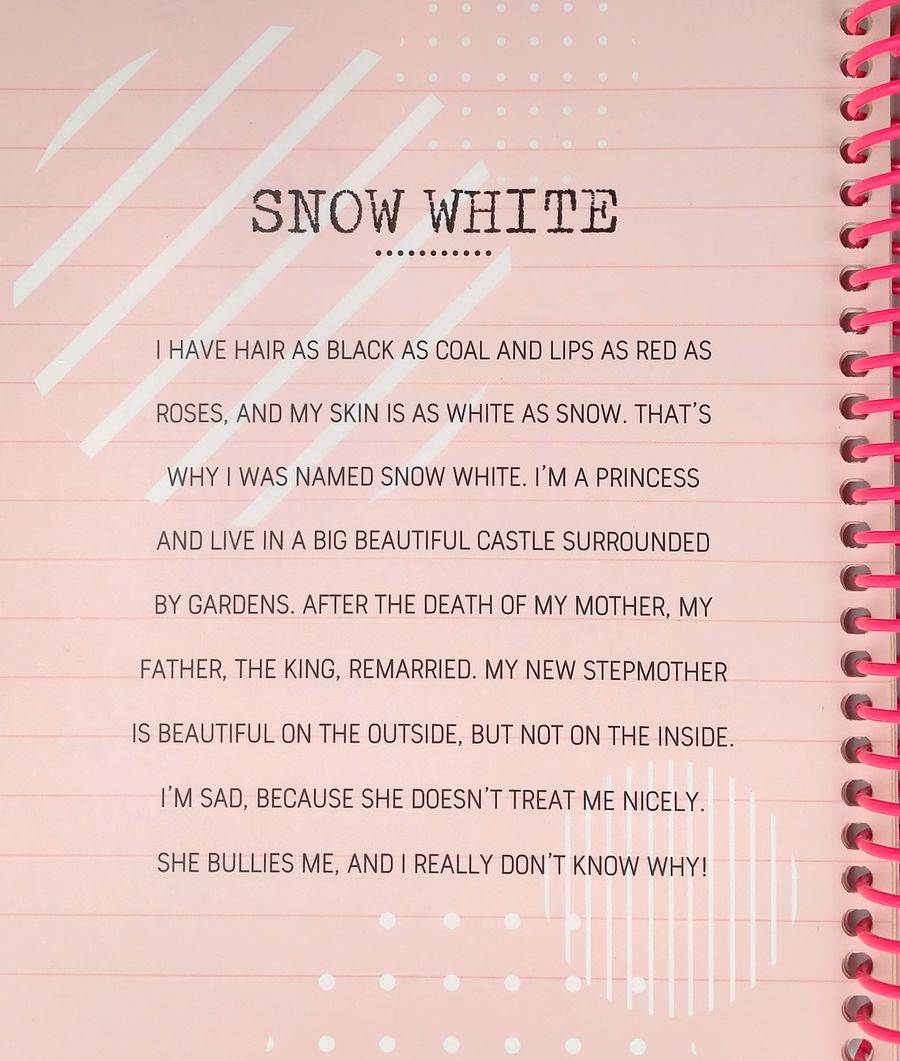 SNOW WHITE
I HAVE HAIR AS BLACK AS COAL AND LIPS AS RED AS
ROSES, AND MY SKIN IS AS WHITE AS SNOW. THAT'S
WHY I WAS NAMED SNOW WHITE. I'M A PRINCESS
AND LIVE IN A BIG BEAUTIFUL CASTLE SURROUNDED
BY GARDENS. AFTER THE DEATH OF MY MOTHER, MY
FATHER, THE KING, REMARRIED. MY NEW STEPMOTHER
IS BEAUTIFUL ON THE OUTSIDE, BUT NOT ON THE INSIDE.
I'M SAD, BECAUSE SHE DOESN'T TREAT ME NICELY.
SHE BULLIES ME, AND I REALLY DON'T KNOW WHY!